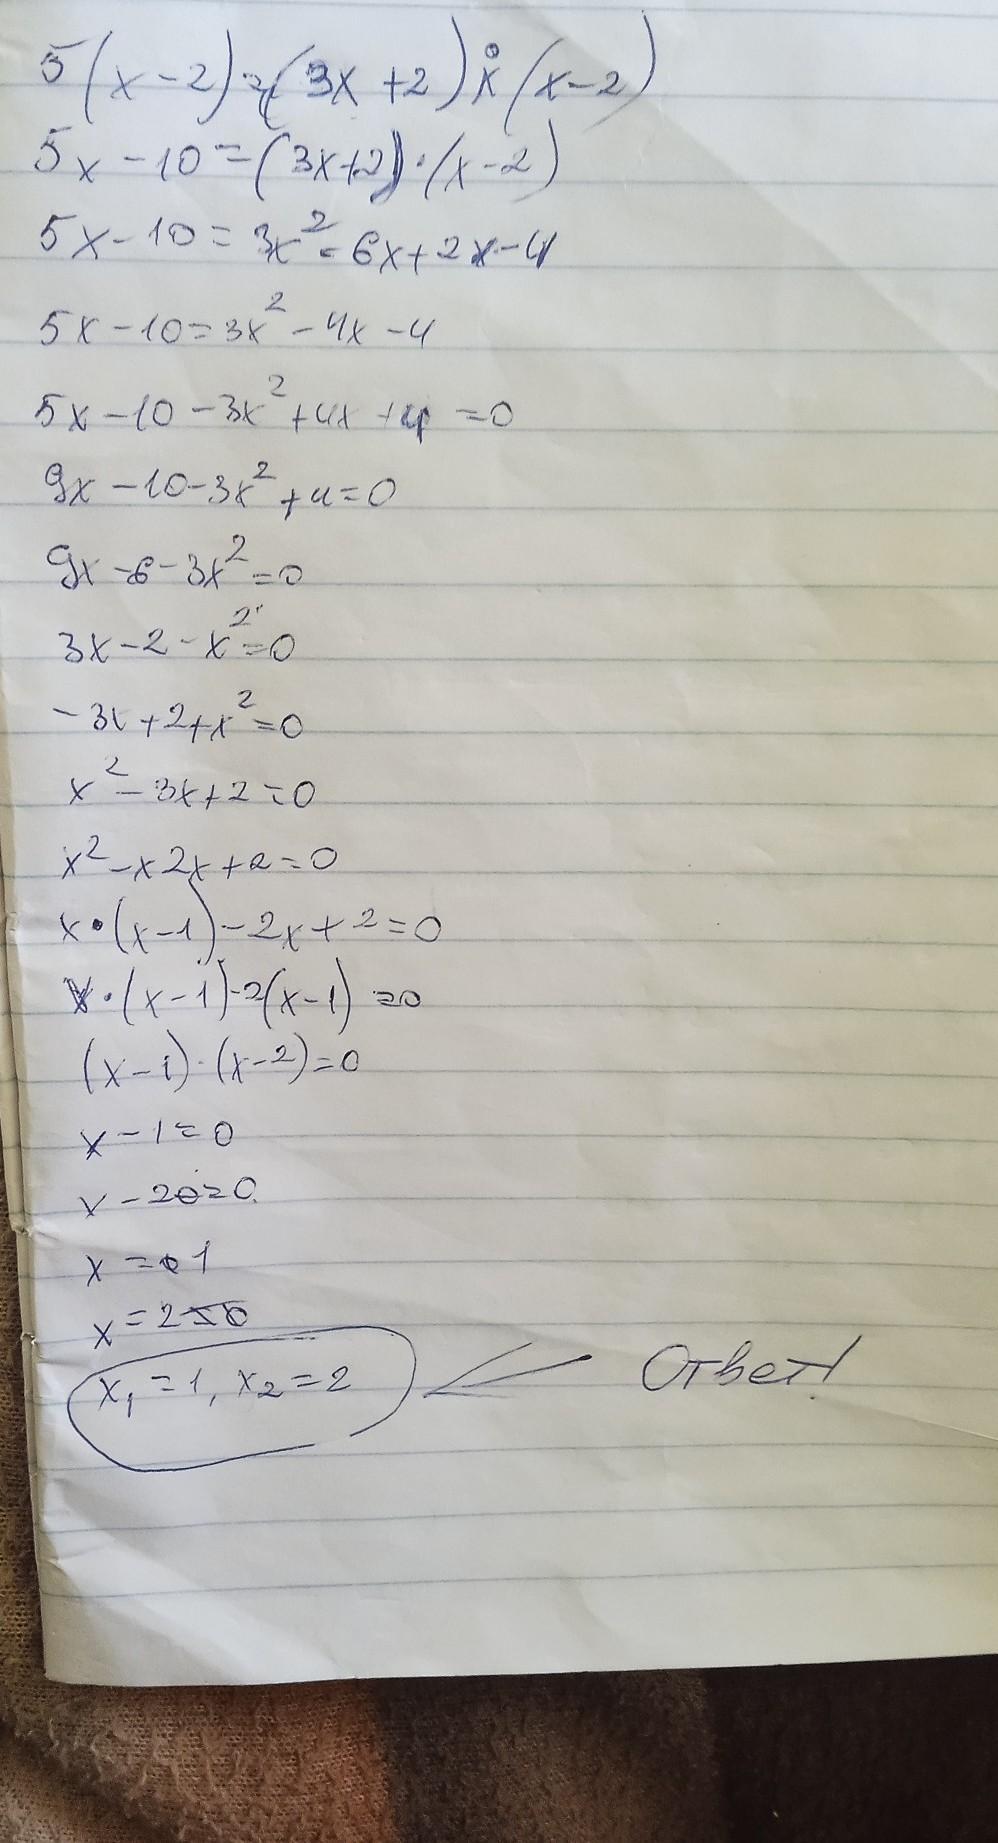 5(x-2)=(3x+2)·(x-2)
5x-10=(3x+2)·(x-2)
5x-10=3x²-6x+2x-4
5x-10=3x²-4x-4
5x-10-3x²+4x+4=0
9x-10-3x²+4=0
9x-6-3x²=0
3x-2-x²=0
-3x+2+x²=0
x²-3x+2=0
x²-x2x+2=0
x·(x-1)-2x+2=0
x·(x-1)-2(x-1)=0
(x-1)·(x-2)=0
x-1=0
x-2=0
x=1
x=2
x₁=1, x₂=2 Ответ!